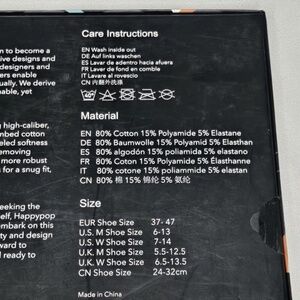 n to become a
ive designs and
designers and
ers enable
ually. We derive
nable, yet
g high-caliber,
mbed cotton
eled softness
res. Removing
more robust
s for a snug fit,
eeking the
elf, Happypop
mbark on this
ty and design
ward to
d ready to
Care Instructions
EN Wash inside out
DE Auf links waschen
ES Lavar de adentro hacia afuera
FR Lavar de fond en comble
IT Lavare al rovescio
CN 内翻外洗涤
Material
EN 80% Cotton 15% Polyamide 5% Elastane
DE 80% Baumwolle 15% Polyamid 5% Elasthan
ES 80% algodón 15% poliamida 5% elastano
FR 80% Coton 15% Polyamide 5% Élasthanne
IT 80% cotone 15% poliammide 5% elastan
CN 80% 棉 15% 锦纶 5% 氨纶
Size
EUR Shoe Size 37- 47
U.S. M Shoe Size 6-13
U.S. W Shoe Size 7-14
U.K. M Shoe Size 5.5-12.5
U.K. W Shoe Size 6.5-13.5
CN Shoe Size 24-32cm
Made in China